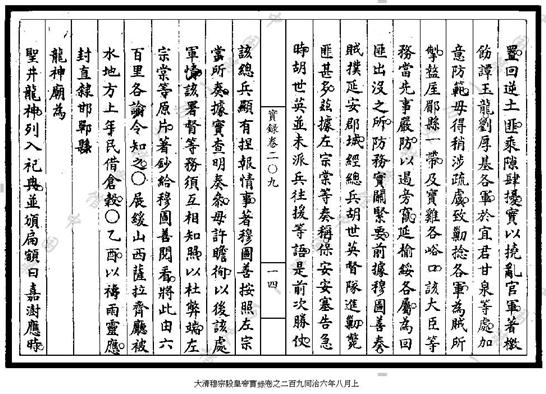 回逆土匪乘隙肆擾實以撓亂官軍著檄
飭譚玉龍劉厚基各軍於宜君甘泉等處加
意防範毋得稍涉疏虞致剿捻各軍為賊所
掣盩厔郿縣一帶及寶雞各峪口該大臣等
務當先事嚴防以遏旁竄延榆綏各屬為回
匪出沒之所防務實關緊要前據穆圖善奏
賊撲延安郡城經總兵胡世英督隊進剿斃
匪甚多茲據左宗棠等奏稱保安安塞告急
時胡世英並未派兵往援等語是前次勝仗
實錄卷二〇九
一四
該總兵顯有捏報情事著穆圖善按照左宗
棠所奏據實查明奏參毋許瞻徇以後該處
軍情該署督等務須互相知照以杜弊端左
宗棠等原片著鈔給穆圖善閱看將此由六
百里各諭令知之〇展緩山西薩拉齊廳被
水地方上年民借倉穀〇乙酉以禱雨靈應
封直隸邯鄲縣
龍神廟為
聖井龍神列入祀典並頒扁額曰嘉澍應時
大清穆宗毅皇帝實錄卷之二百九同治六年八月上